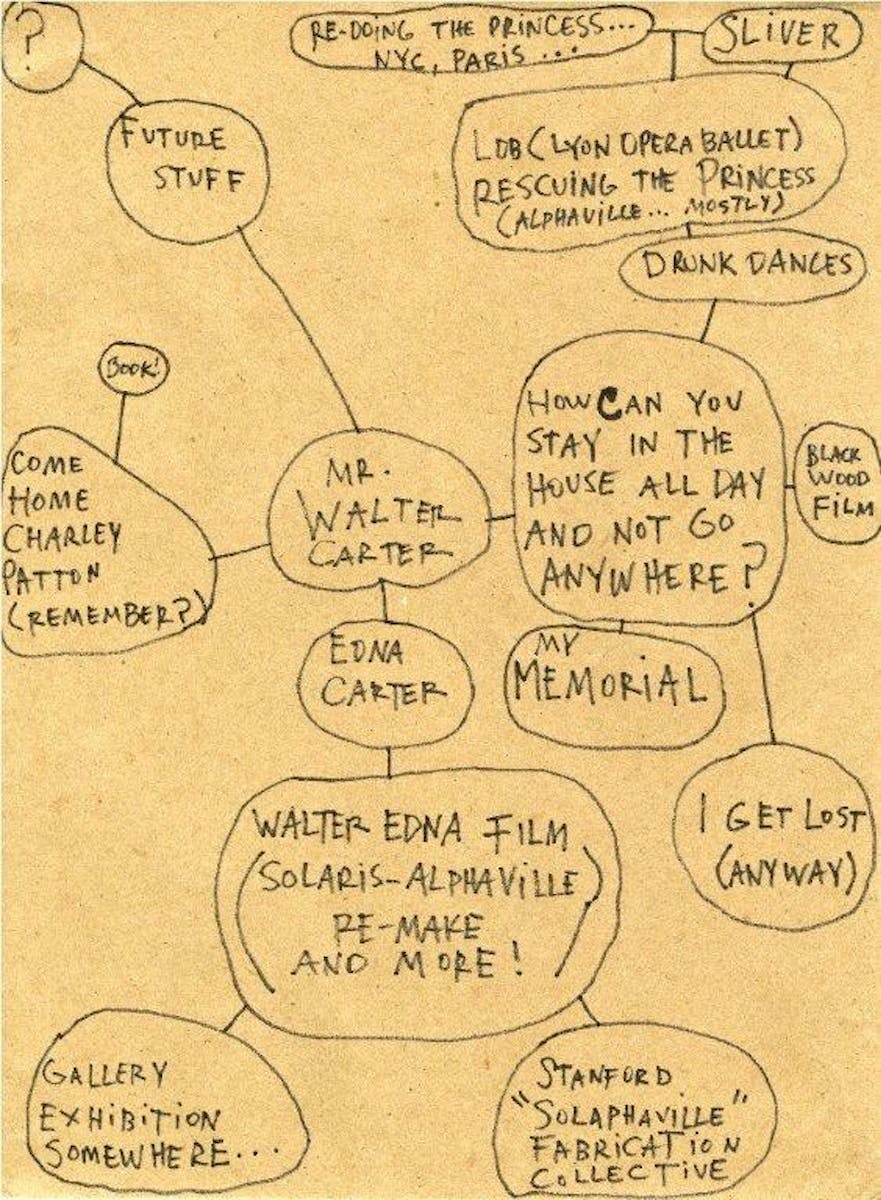 ?
RE-DOING THE PRINCESS...
NYC, PARIS ...
SLIVER
FUTURE
STUFF
LOB (LYON OPERA BALLET)
RESCUING THE PRINCESS
(ALPHAVILLE... MOSTLY)
DRUNK DANCES
BOOK!
COME
HOME
CHARLEY
PATTON
(REMEMBER?)
MR.
WALTER
CARTER
HOW CAN YOU
STAY IN THE
HOUSE ALL DAY
AND NOT GO
ANYWHERE?
BLACK
WOOD
FILM
EDNA
CARTER
MY
MEMORIAL
WALTER EDNA FILM
(SOLARIS-ALPHAVILLE)
RE-MAKE
AND MORE!
I GET LOST
(ANYWAY)
GALLERY
EXHIBITION
SOMEWHERE...
STANFORD
"SOLAPHAVILLE"
FABRICATION
COLLECTIVE